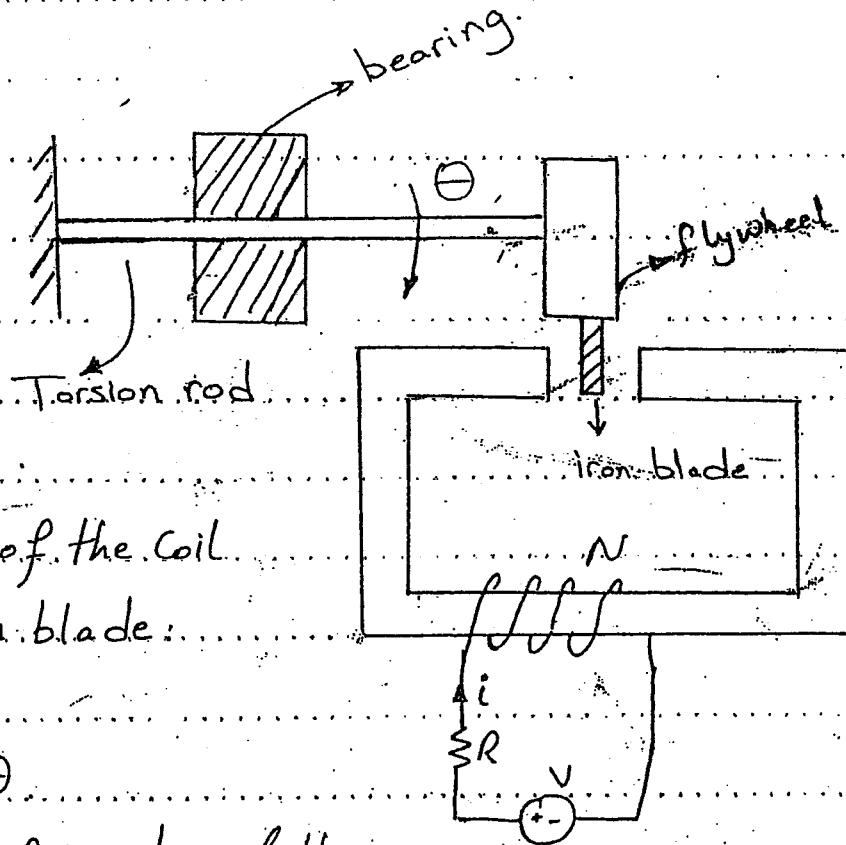 bearing.
θ
flywheel
Torsion rod
iron blade
of the coil
N
blade:
i
R
V
+ -
θ